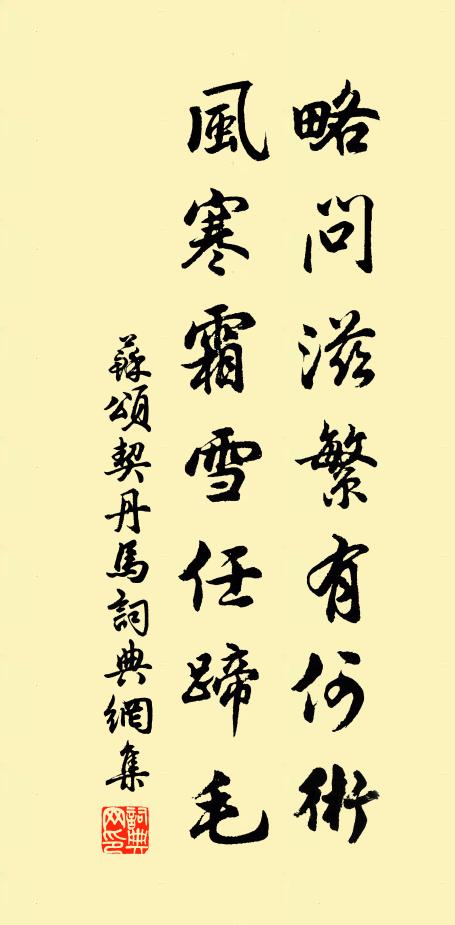 略問滋繁有何術
風寒霜雪任蹄毛
蘇頌契丹馬詞典網集
詞典网印